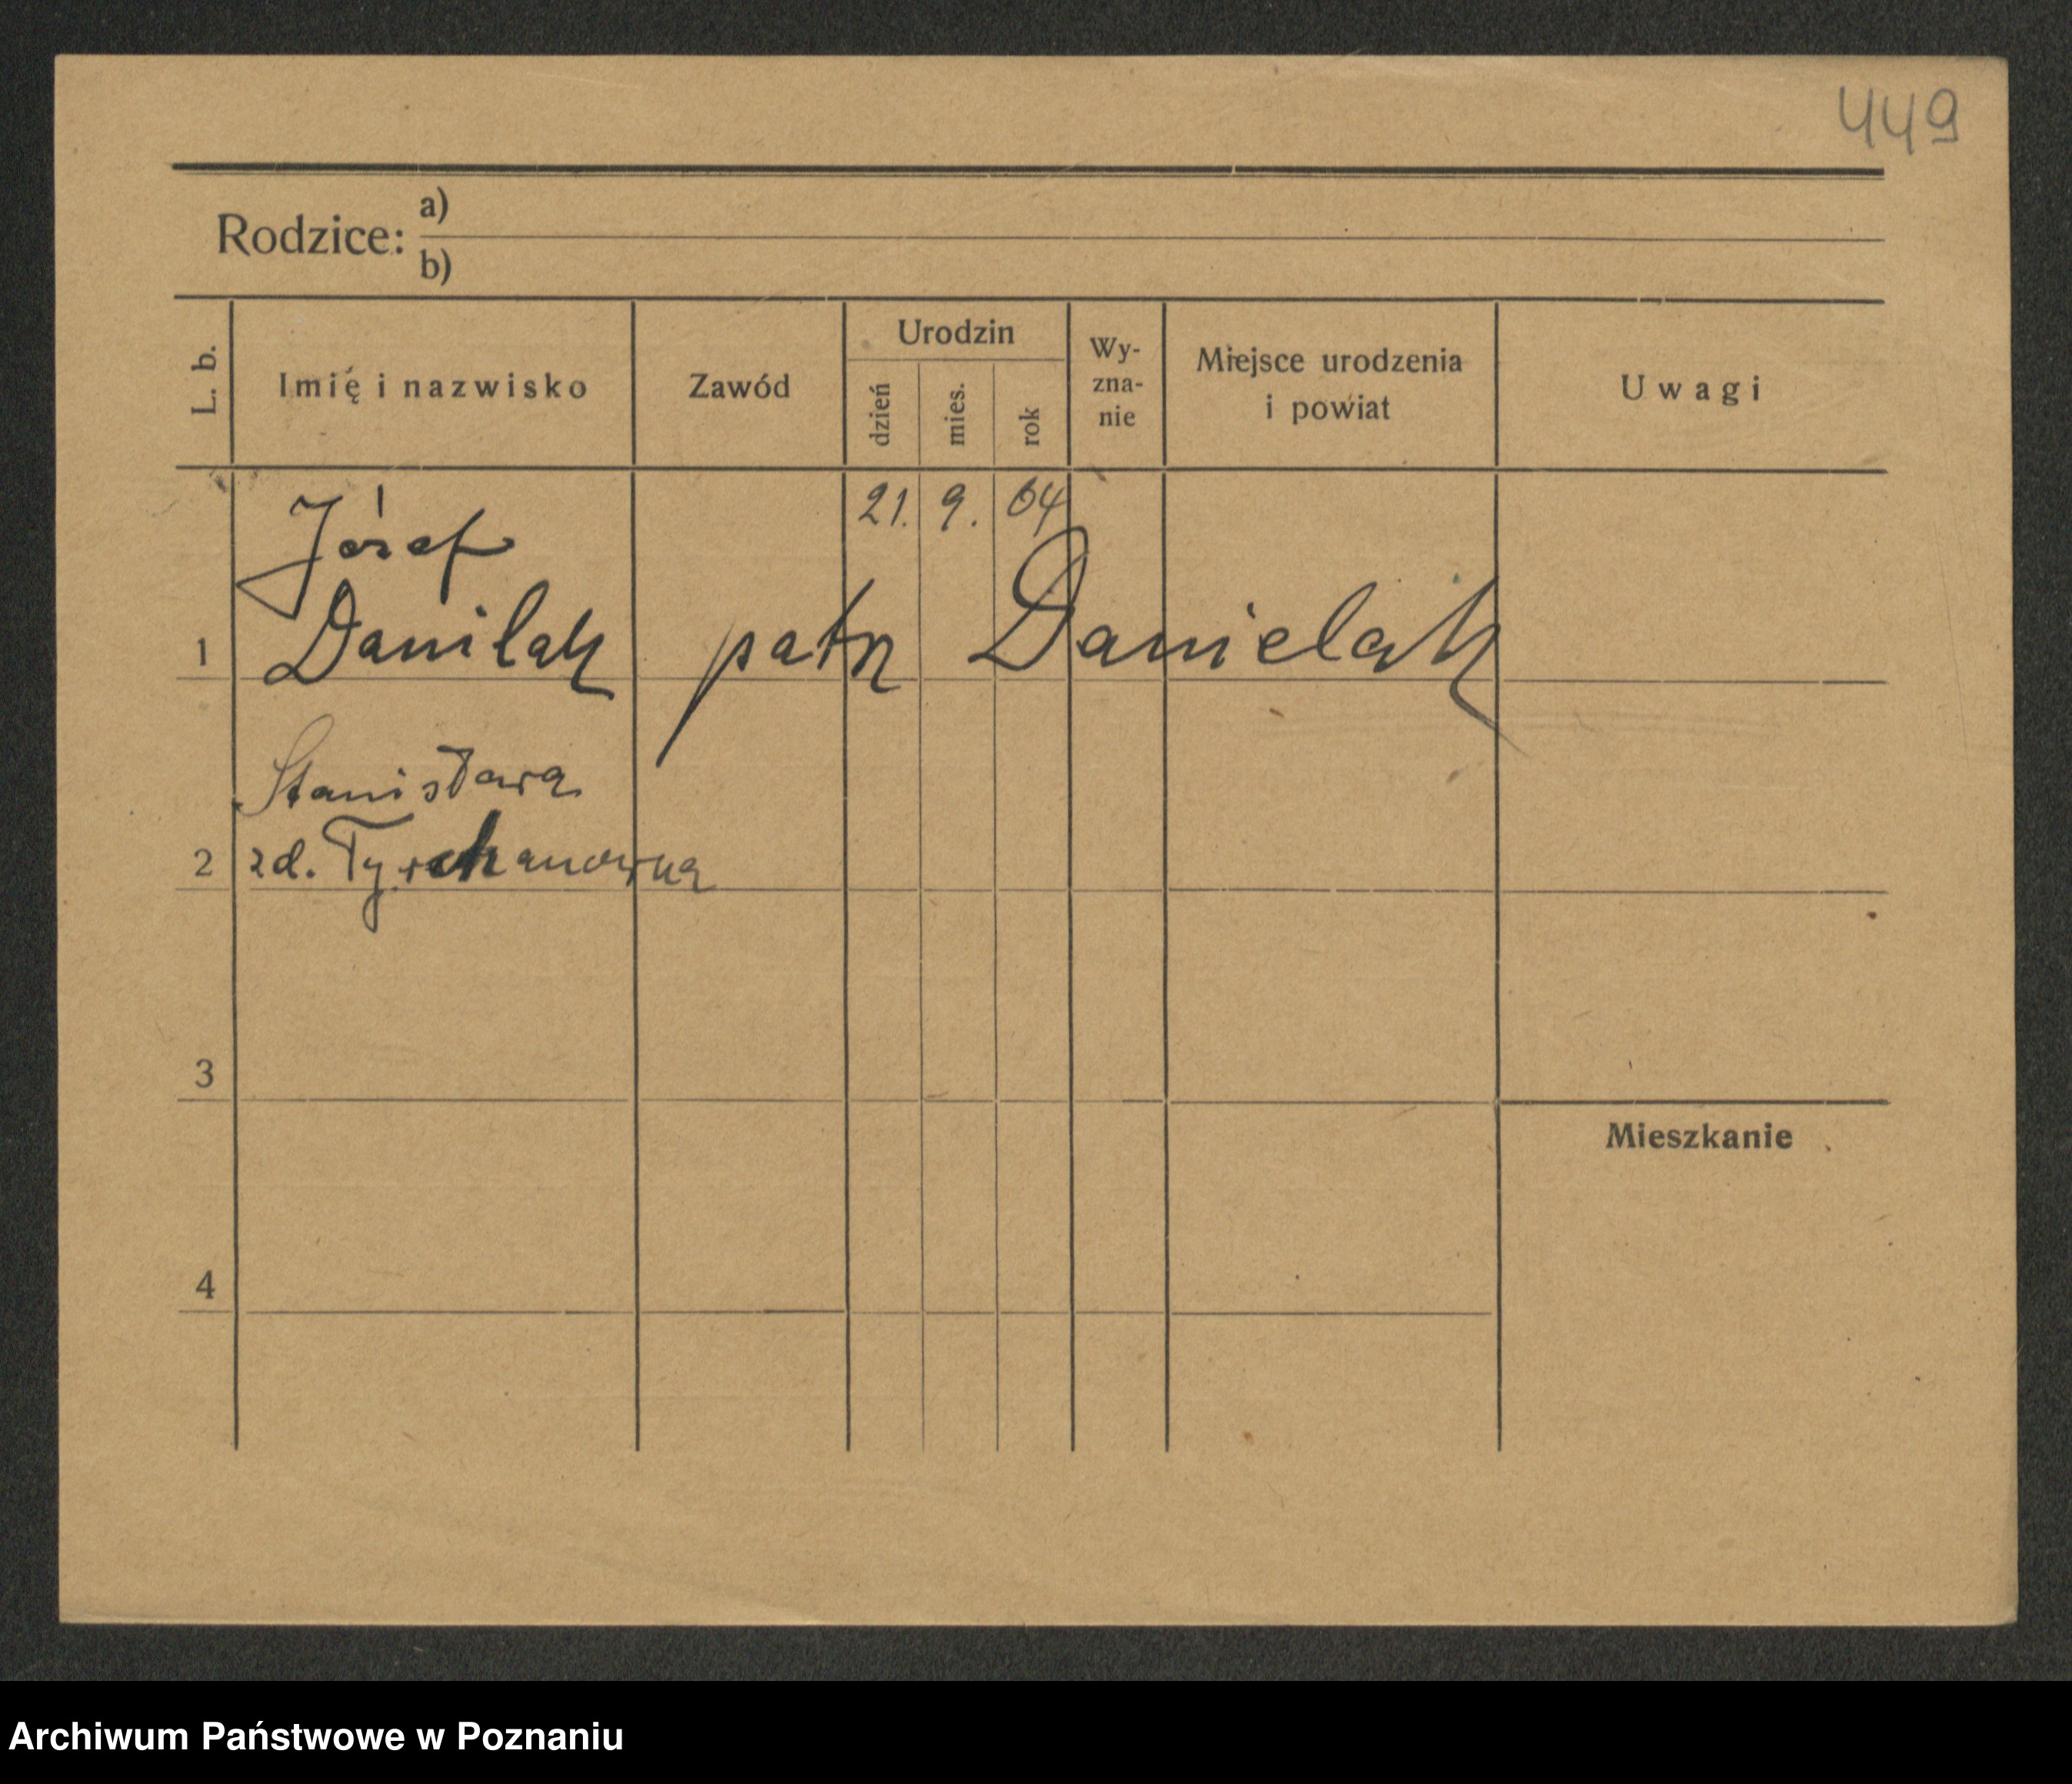 449
Rodzice: a)
b)
L. b. Imię i nazwisko Zawód Urodzin dzień mies. rok Wy-zna-nie Miejsce urodzenia i powiat Uwagi
Józef 21. 9. 04
1 Danilak patrz Danielak
Stanisława
2 zd.
3
Mieszkanie
4
Archiwum Państwowe w Poznaniu